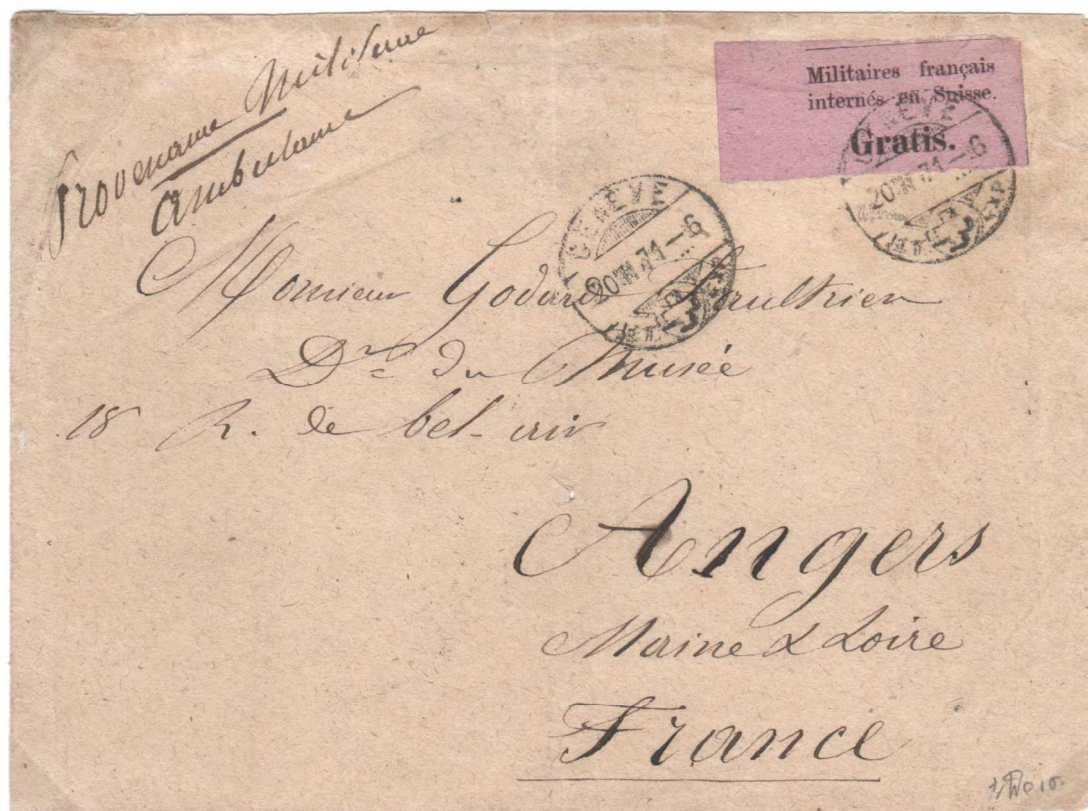 Provenance Militaire
Ambulance
Militaires français
internés en Suisse.
Gratis.
GENÈVE
20 III 71 — 6
GENÈVE
20 III 71 — 6
Monsieur Godard Faultrier
Dr du Musée
18 R. de bel-air
Angers
Maine & Loire
France